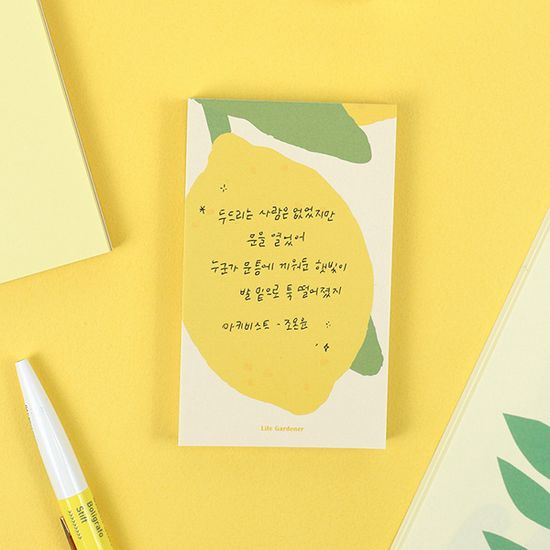 * 두드리는 사람은 없었지만
문을 열었어
누군가 문틈에 끼워둔 햇빛이
발 밑으로 툭 떨어졌지
아키비스트 - 조온윤
Life Gardener
Boligrafo
Stiff